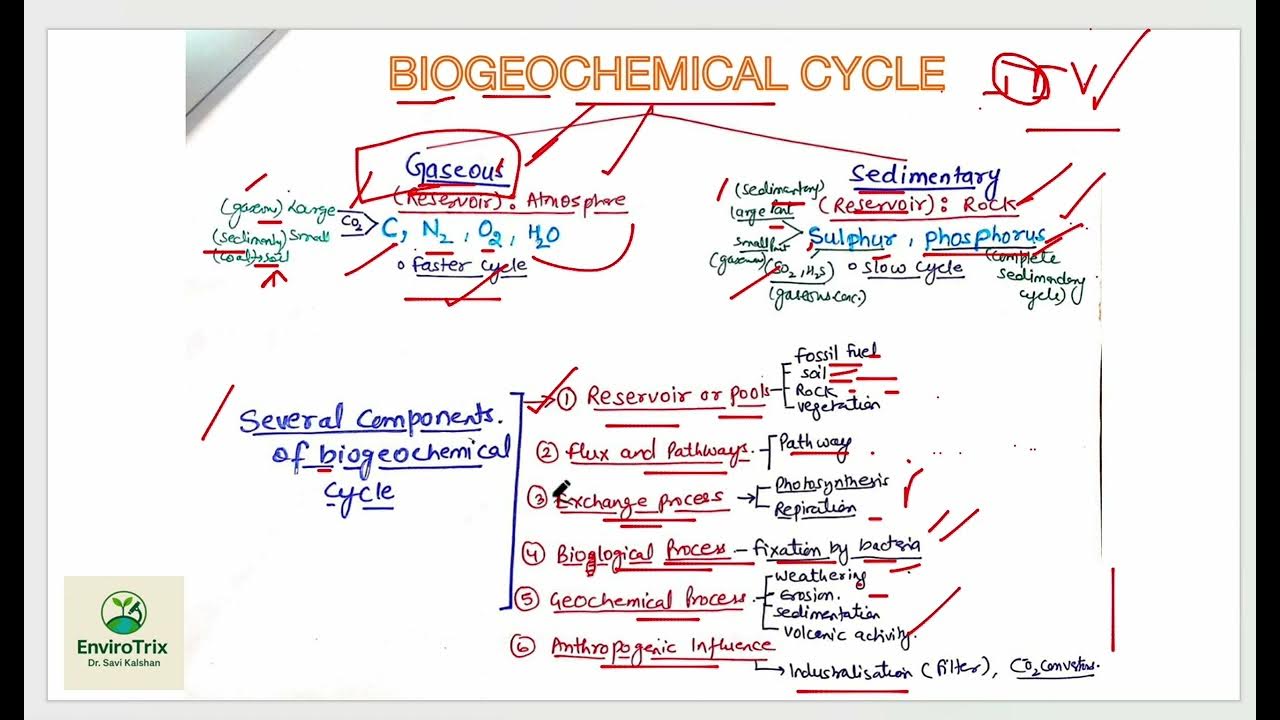 BIOGEOCHEMICAL CYCLE
Gaseous
(Reservoir): Atmosphere
(gaseous) Large
(sedimently) small
(coal) → soil
CO2
C, N2, O2, H2O
o faster cycle
Sedimentary
(Reservoir): Rock
(sedimentary)
large Part
small Part
(gaseous)
Sulphur, phosphorus
(SO2, H2S)
(gaseous conc.)
o slow cycle
(complete
sedimendary
cycle)
Several Components.
of biogeochemical
cycle
① Reservoir or Pools
fossil fuel
soil
Rock
vegetation
② flux and Pathways.
Pathway
③ Exchange process
Photosynthesis
Repiration
④ Biological Process - fixation by bacteria
⑤ Geochemical Process
weathering
Erosion.
sedimentation
volcanic activity.
⑥ Anthropogenic Influence
Industralisation (filter),
EnviroTrix
Dr. Savi Kalshan